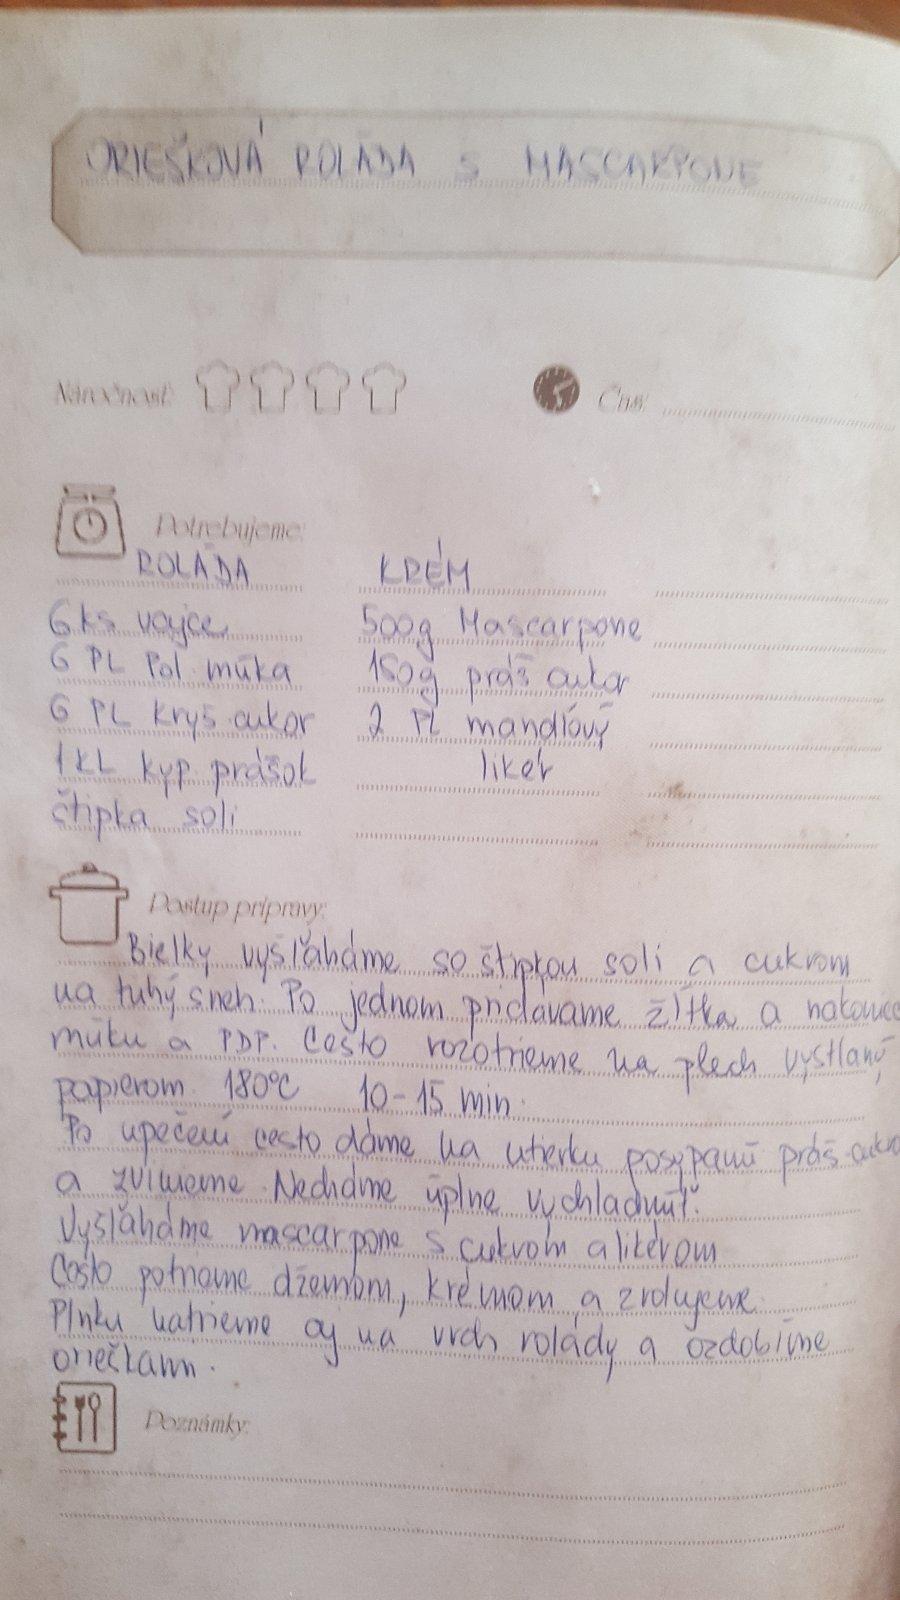 ORIEŠKOVÁ ROLÁDA S MASCARPONE
Náročnosť: Čas:
Potrebujeme:
ROLÁDA KRÉM
6 ks vajce 500g Mascarpone
6 PL Pol múka 150g práš cukor
6 PL kryš. cukor 2 PL mandlový
1 KL kyp. prášok likér
štipka soli
Postup prípravy:
Bielky vyšľaháme so štipkou soli a cukrom
na tuhý sneh. Po jednom pridávame žĺtka a nakoniec
múku a PDP. Cesto rozotrieme na plech vystlaný
papierom. 180°C 10-15 min.
Po upečení cesto dáme na utierku posypanú práš. cukro
a zvinieme. Necháme úplne vychladnúť.
Vyšľaháme mascarpone s cukrom a likérom
Cesto potrieme džemom, krémom a zrolujeme.
Plnku natrieme aj na vrch rolády a ozdobíme
orieškami.
Poznámky: